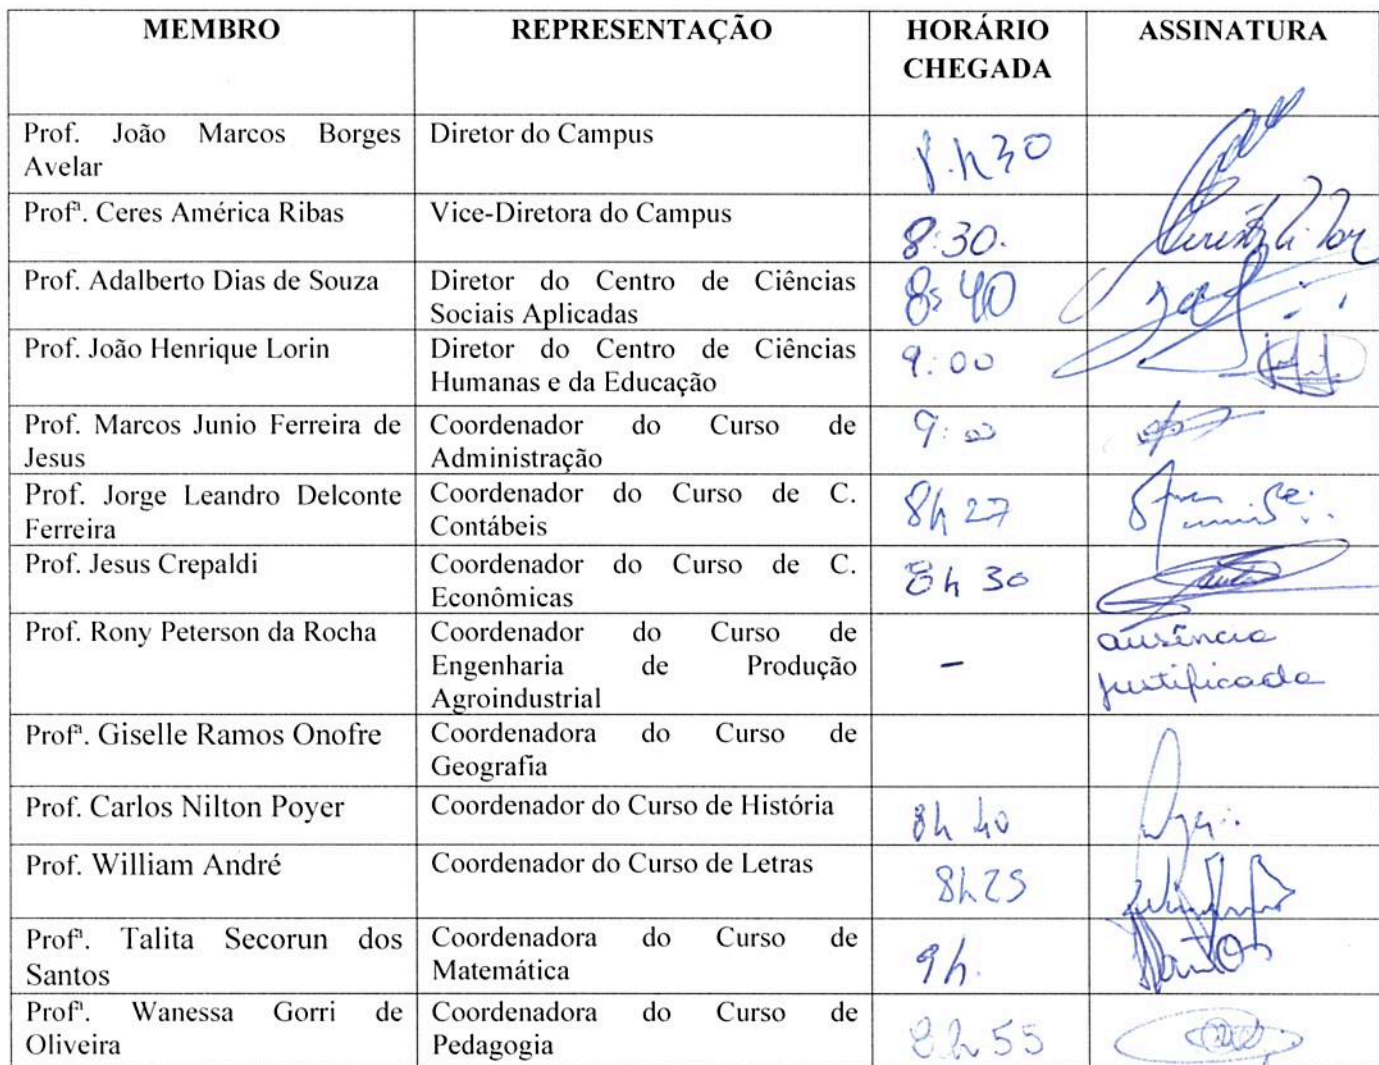 MEMBRO REPRESENTAÇÃO HORÁRIO ASSINATURA
CHEGADA
Prof. João Marcos Borges Diretor do Campus 8.h30
Avelar
Profª. Ceres América Ribas Vice-Diretora do Campus 8:30.
Prof. Adalberto Dias de Souza Diretor do Centro de Ciências 8:40
Sociais Aplicadas
Prof. João Henrique Lorin Diretor do Centro de Ciências 9:00
Humanas e da Educação
Prof. Marcos Junio Ferreira de Coordenador do Curso de 9:00
Jesus Administração
Prof. Jorge Leandro Delconte Coordenador do Curso de C. 8h 27
Ferreira Contábeis
Prof. Jesus Crepaldi Coordenador do Curso de C. 8h 30
Econômicas
Prof. Rony Peterson da Rocha Coordenador do Curso de ausência
Engenharia de Produção – justificada
Agroindustrial
Profª. Giselle Ramos Onofre Coordenadora do Curso de
Geografia
Prof. Carlos Nilton Poyer Coordenador do Curso de História 8h 40
Prof. William André Coordenador do Curso de Letras 8h25
Profª. Talita Secorun dos Coordenadora do Curso de 9h.
Santos Matemática
Profª. Wanessa Gorri de Coordenadora do Curso de 8h55
Oliveira Pedagogia